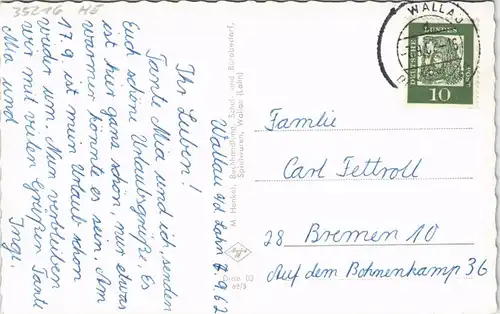 35216 HE
Wallau a/d Lahn 7.9.62
Ihr Lieben!
Tante Mia und ich, senden
Euch schöne Urlaubsgrüße. Es
ist hier ganz schön, nur etwas
wärmer könnte es sein. Am
17.9. ist mein Urlaub schon
wieder um. Nun verbleiben
wir mit vielen Grüßen Tante
Mia und Inge.
M. Henkel, Buchhandlung, Schul- und Bürobedarf,
Spielwaren, Wallau (Lahn)
WALLAU
DEUTSCHE BUNDESPOST
10
Familie
Carl Fettroll
28 Bremen 10
Auf dem Bohnenkamp 36